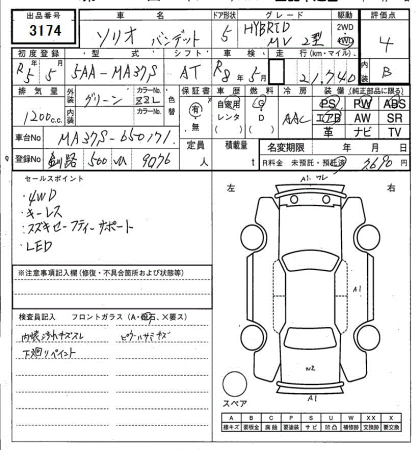 出品番号 車名 ドア形状 グレード 駆動 評価点
3174 ソリオ バンデット 5 HYBRID MV 2型 2WD 4WD 4
初度登録 型式 シフト 車検 走行(km・マイル) 内装
R5年5月 5AA-MA37S AT R8年5月 21,740 B
排気量 外装 カラー カラーNo. 色替 保証書 車歴 燃料 冷房 装備(純正部品に限る)
1200c.c. グリーン ZZL 有・無 自家用 レンタ G D AAC PS PW ABS
エアB AW SR
革 ナビ TV
車台No. MA37S-650171 定員 積載量 名変期限 年 月 日
釧路 500 9076 人 t R料金 未預託・預託済
セールスポイント 左 右
・4WD
・キーレス
・スズキセーフティーサポート
・LED
A1
※注意事項記入欄(修復・不具合箇所および状態等)
検査員記入 フロントガラス(A・飛石、×要ス)
下廻りペイント
W2
A1
スペア
A B C P S U W X XX ×
線キズ 要板金 腐蝕 要塗装 サビ 凹凸 補修跡 交換跡 要交換